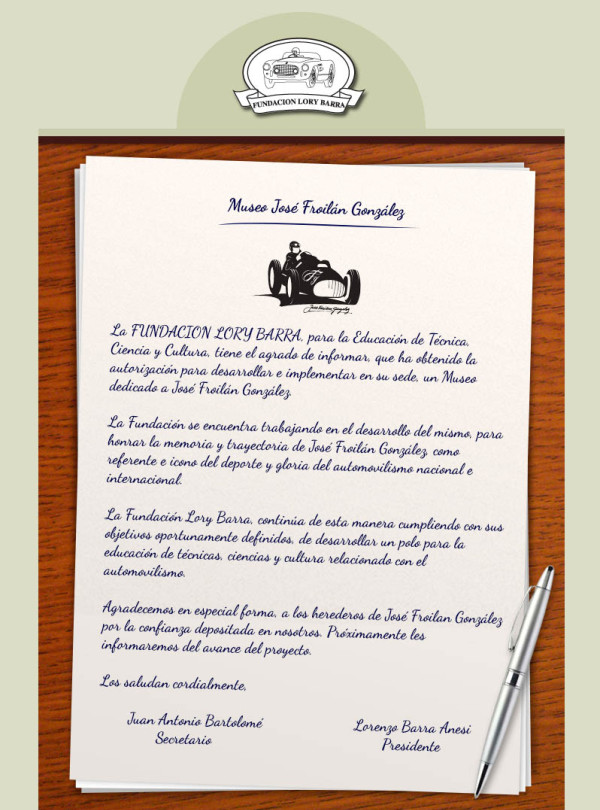 FUNDACION LORY BARRA
Museo José Froilán González
La FUNDACION LORY BARRA, para la Educación de Técnica,
Ciencia y Cultura, tiene el agrado de informar, que ha obtenido la
autorización para desarrollar e implementar en su sede, un Museo
dedicado a José Froilán González.
La Fundación se encuentra trabajando en el desarrollo del mismo, para
honrar la memoria y trayectoria de José Froilán González, como
referente e icono del deporte y gloria del automovilismo nacional e
internacional.
La Fundación Lory Barra, continúa de esta manera cumpliendo con sus
objetivos oportunamente definidos, de desarrollar un polo para la
educación de técnicas, ciencias y cultura relacionado con el
automovilismo.
Agradecemos en especial forma, a los herederos de José Froilan González
por la confianza depositada en nosotros. Próximamente les
informaremos del avance del proyecto.
Los saludan cordialmente,
Juan Antonio Bartolomé
Secretario
Lorenzo Barra Anesi
Presidente